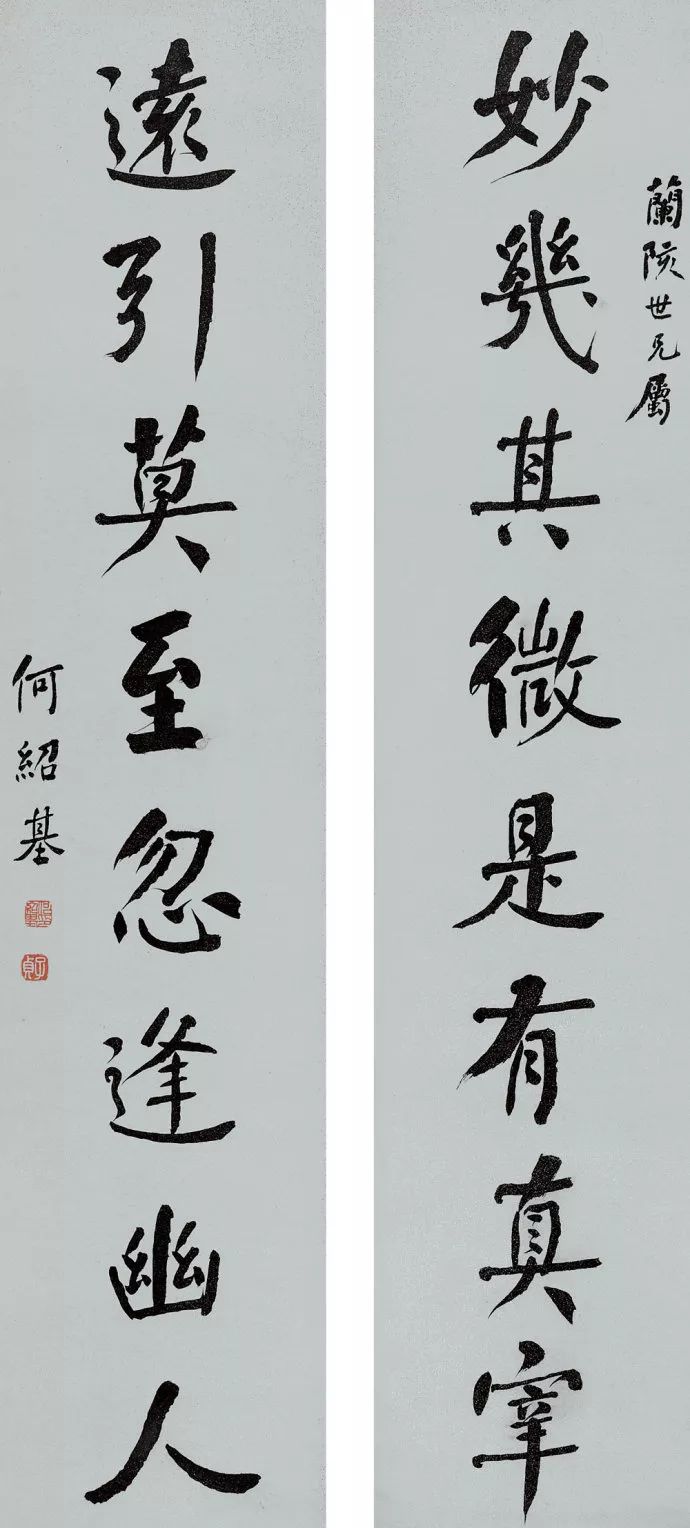 蘭陔世兄屬
妙幾其微是有真宰
遠引莫至忽逢幽人
何紹基
子貞